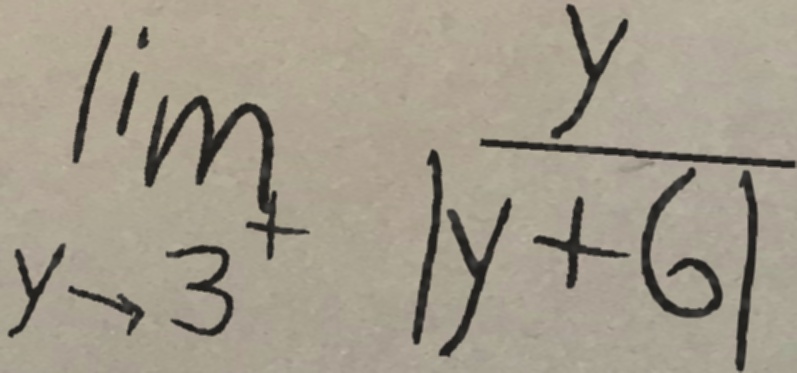 lim y→3⁺ y/|y+6|